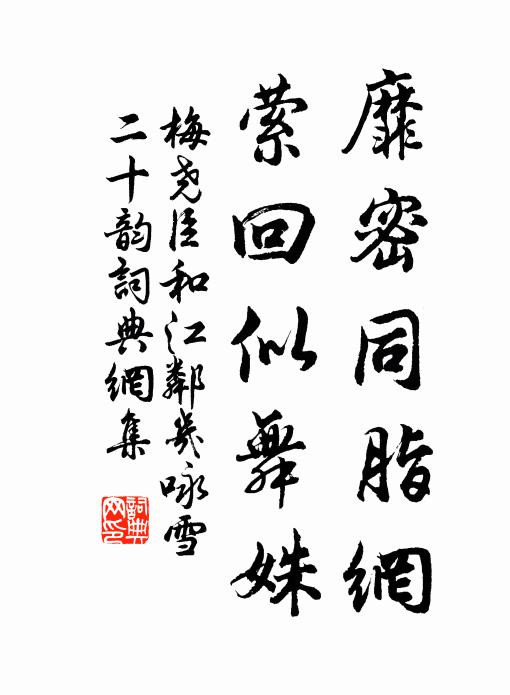 靡密同脂網
縈回似舞姝
梅尭臣和江鄰幾咏雪
二十韵詞典網集
詞典
网印